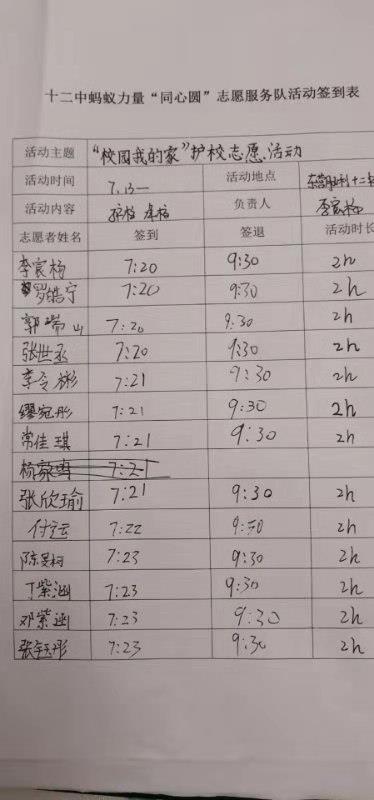 十二中蚂蚁力量“同心圆”志愿服务队活动签到表
活动主题 “校园我的家”护校志愿活动
活动时间 7.13 活动地点 东营胜利十二中
活动内容 护校 负责人 李宸杨
志愿者姓名 签到 签退 活动时长
李宸杨 7:20 9:30 2h
罗皓宁 7:20 9:30 2h
郭常山 7:20 9:30 2h
张世丞 7:20 9:30 2h
李令彬 7:21 9:30 2h
缪宛彤 7:21 9:30 2h
常佳琪 7:21 9:30 2h
7:21
张欣瑜 7:21 9:30 2h
付 7:22 9:30 2h
陈昊柯 7:23 9:30 2h
丁紫涵 7:23 9:30 2h
邓紫涵 7:23 9:30 2h
张钰彤 7:23 9:30 2h